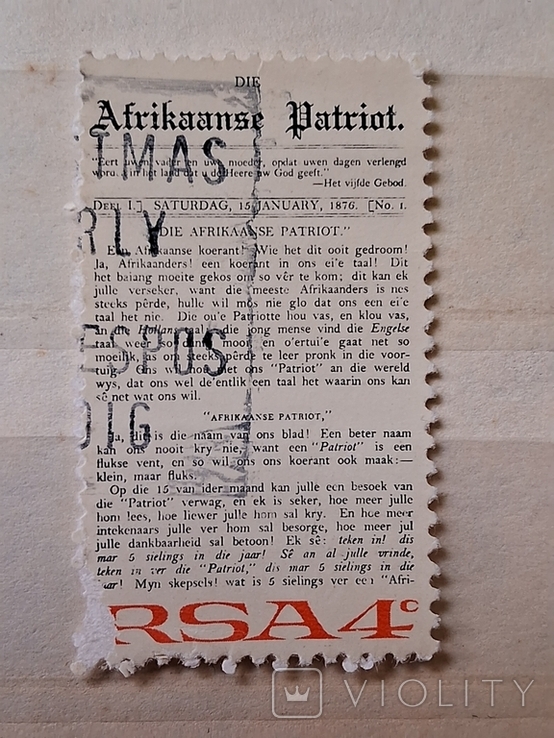 DIE
Afrikaanse Patriot.
"Eert uwen vader en uwe moeder, opdat uwen dagen verlengd
word. in het land dat u de Heere uw God geeft."
—Het vijfde Gebod.
DEEL I.] SATURDAY, 15 JANUARY, 1876. [No. 1.
"DIE AFRIKAANSE PATRIOT."
Afrikaanse koerant! Wie het dit ooit gedroom!
Ja, Afrikaanders! een koerant in ons ei'e taal! Dit
het baiang moeite gekos om so vêr te kom; dit kan ek
julle verseker, want die meeste Afrikaanders is nes
steeks pêrde, hulle wil mos nie glo dat ons een ei'e
taal het nie. Die ou'e Patriotte hou vas, en klou vas,
an die Hollans taal; die jong mense vind die Engelse
taal weer so danig mooi en o'ertui'e gaat net so
moeilik, as om steeks pêrde te leer pronk in die voor-
tuig. Ons wil met ons "Patriot" an die wereld
wys, dat ons wel de'entlik een taal het waarin ons kan
sê net wat ons wil.
"AFRIKAANSE PATRIOT,"
Ja, dit is die naam van ons blad! Een beter naam
kan ons nooit kry nie, want een "Patriot" is een
flukse vent, en so wil ons ons koerant ook maak:—
klein, maar fluks.
Op die 15 van ider maand kan julle een besoek van
die "Patriot" verwag, en ek is seker, hoe meer julle
hom lees, hoe liewer julle hom sal kry. En hoe meer
intekenaars julle ver hom sal besorge, hoe meer jul
julle dankbaarheid sal betoon! Ek sê: teken in! dis
mar 5 sielings in die jaar! Sê an al julle vrinde,
teken in ver die "Patriot," dis mar 5 sielings in die
jaar! Myn skepsels! wat is 5 sielings ver een "Afri-
RSA 4c
TMAS
RLY
ESPOS
DIG
VIOLITY